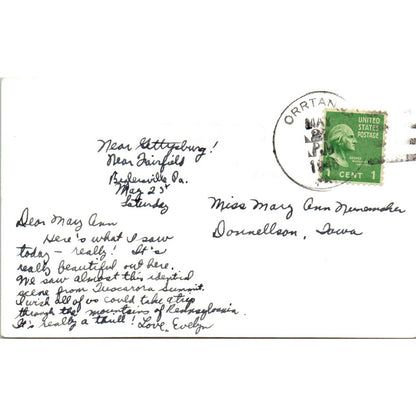 ORRTAN
MAY
2
PM
UNITED STATES
POSTAGE
1 CENT 1
Near Gettysburg!
Near Fairfield
Biglerville Pa.
May 23rd
Saturday
Miss Mary Ann Nunemaker
Donnellson, Iowa
Dear Mary Ann
Here's what I saw
today - really! It's
really beautiful out here.
We saw almost this identical
scene from Tuscarora Summit.
I wish all of us could take a trip
through the mountains of Pennsylvania.
It's really a thrill! Love, Evelyn